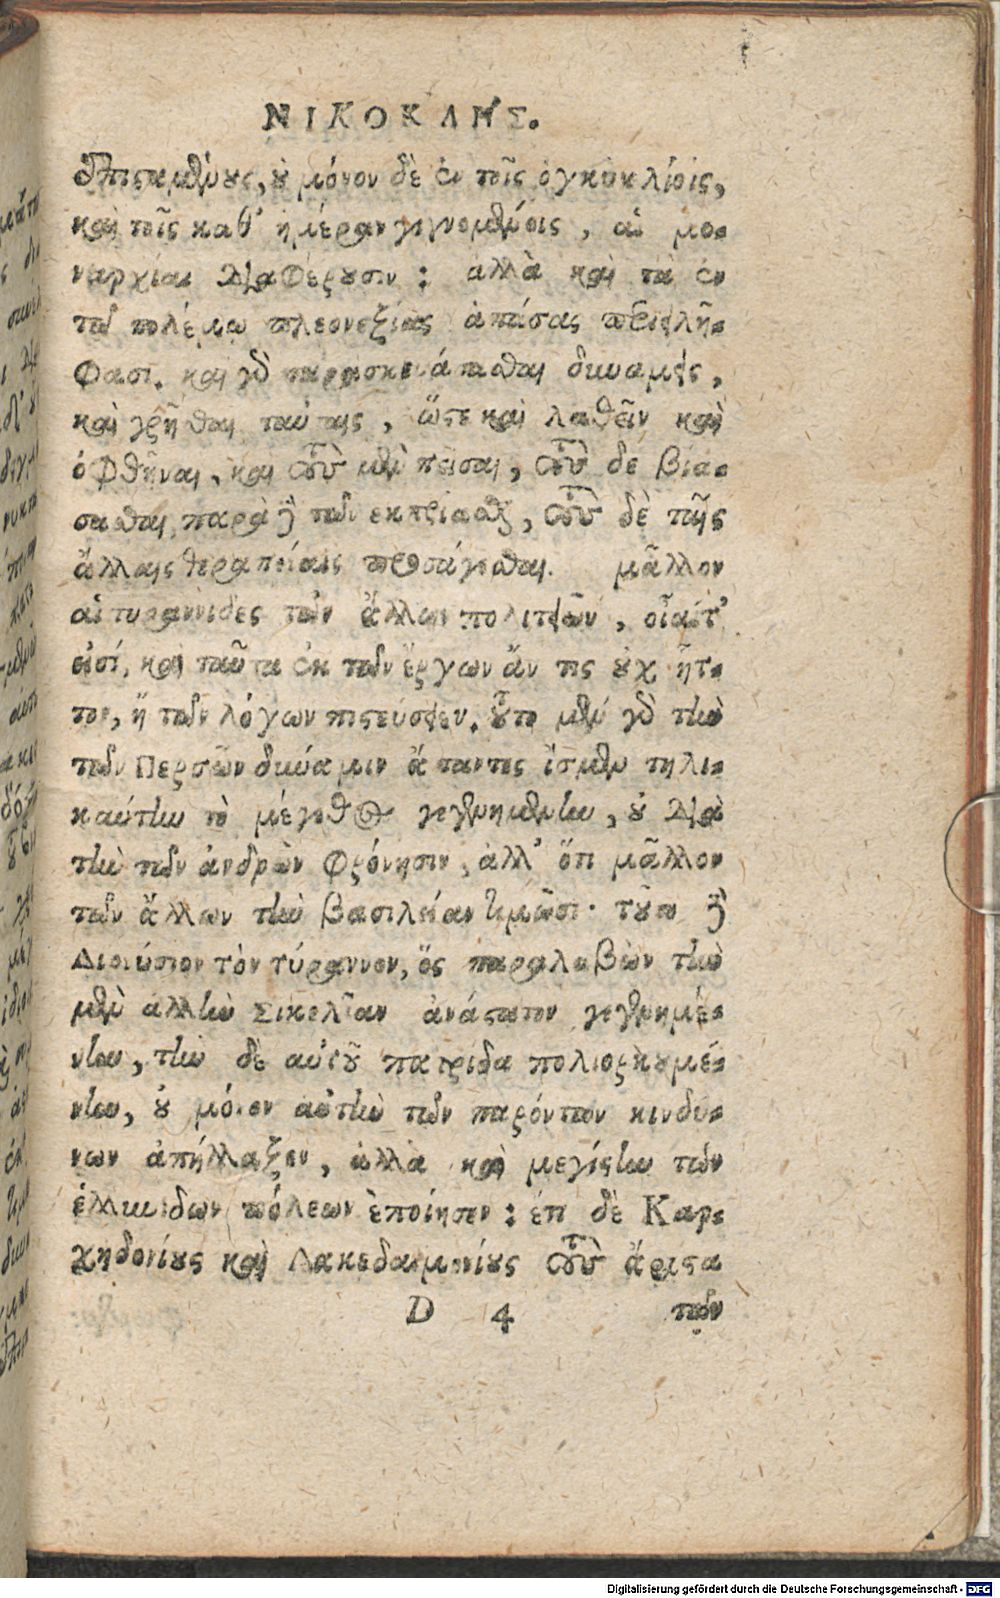 ΝΙΚΟΚΛΗΣ.
ἐπισταμένους, οὐ μόνον δὲ ἐν τοῖς ἐγκυκλίοις,
καὶ τοῖς καθ' ἡμέραν γιγνομένοις, αἱ μο-
ναρχίαι διαφέρουσιν: ἀλλὰ καὶ τὰς ἐν
τῷ πολέμῳ πλεονεξίας ἁπάσας περιειλή-
φασι. καὶ γὸ παρασκευάσασθαι δυνάμεις,
καὶ χρῆσθαι ταύταις, ὥστε καὶ λαθεῖν καὶ
ὀφθῆναι, καὶ τοὺς μὲν πεῖσαι, τοὺς δὲ βιά-
σασθαι, παρὰ δὲ τῶν ἐκπρίασθαι, τοὺς δὲ ταῖς
ἄλλαις θεραπείαις προσάγεσθαι. μᾶλλον
αἱ τυραννίδες τῶν ἄλλων πολιτειῶν, οἷαί τ'
εἰσί, καὶ ταῦτα ἐκ τῶν ἔργων ἄν τις οὐχ ἧτ-
τον, ἢ τῶν λόγων πιστεύσειεν. τοῦτο μὲν γὸ τὴν
τῶν Περσῶν δύναμιν ἅπαντες ἴσμεν τηλι-
καύτην τὸ μέγεθος γεγενημένην, οὐ διὰ
τὴν τῶν ἀνδρῶν φρόνησιν, ἀλλ' ὅτι μᾶλλον
τῶν ἄλλων τὴν βασιλείαν τιμῶσι· τοῦτο δὲ
Διονύσιον τὸν τύραννον, ὃς παραλαβὼν τὴν
μὲν ἄλλην Σικελίαν ἀνάστατον γεγενημέ-
νην, τὴν δὲ αὑτοῦ πατρίδα πολιορκουμέ-
νην, οὐ μόνον αὐτὴν τῶν παρόντων κινδύ-
νων ἀπήλλαξεν, ἀλλὰ καὶ μεγίστην τῶν
ἑλληνίδων πόλεων ἐποίησεν: ἔτι δὲ Καρ-
χηδονίους καὶ Λακεδαιμονίους τοὺς ἄριστα
D 4 τῶν
Digitalisierung gefördert durch die Deutsche Forschungsgemeinschaft - DFG